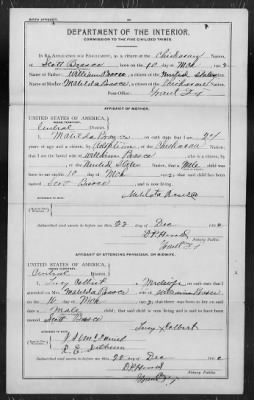 BIRTH AFFIDAVIT.
DEPARTMENT OF THE INTERIOR.
COMMISSION TO THE FIVE CIVILIZED TRIBES.
IN RE APPLICATION FOR ENROLLMENT, as a citizen of the Chickasaw Nation,
of Scott Brooce, born on the 10 day of Mch
Name of Father: William Brooce, a citizen of the United States
Name of Mother: Matilda Brooce, a citizen of the Chickasaw Nation.
Post-Office:
AFFIDAVIT OF MOTHER.
UNITED STATES OF AMERICA,
INDIAN TERRITORY,
Central District.
I, Matilda Brooce, on oath state that I am 24
years of age and a citizen, by Adoption of the Chickasaw Nation;
that I am the lawful wife of William Brooce, who is a
citizen, of the United States; that a Male child was
born to me on 10 day of Mch; that said child has been
named Scott Brooce, and is now living.
Matilda Brooce
Subscribed and sworn to before me this 22 day of Dec
Notary Public.
AFFIDAVIT OF ATTENDING PHYSICIAN, OR MIDWIFE.
UNITED STATES OF AMERICA,
INDIAN TERRITORY,
Central District.
I, Lucy Colbert, a Midwife, on oath state that I
attended on Mrs. Matilda Brooce, wife of William Brooce
on the 10 day of Mch; that there was born to her on said
date a Male child; that said child is now living and is said to have been named
Scott Brooce
Lucy Colbert
Subscribed and sworn to before me this 22 day of Dec
Notary Public.